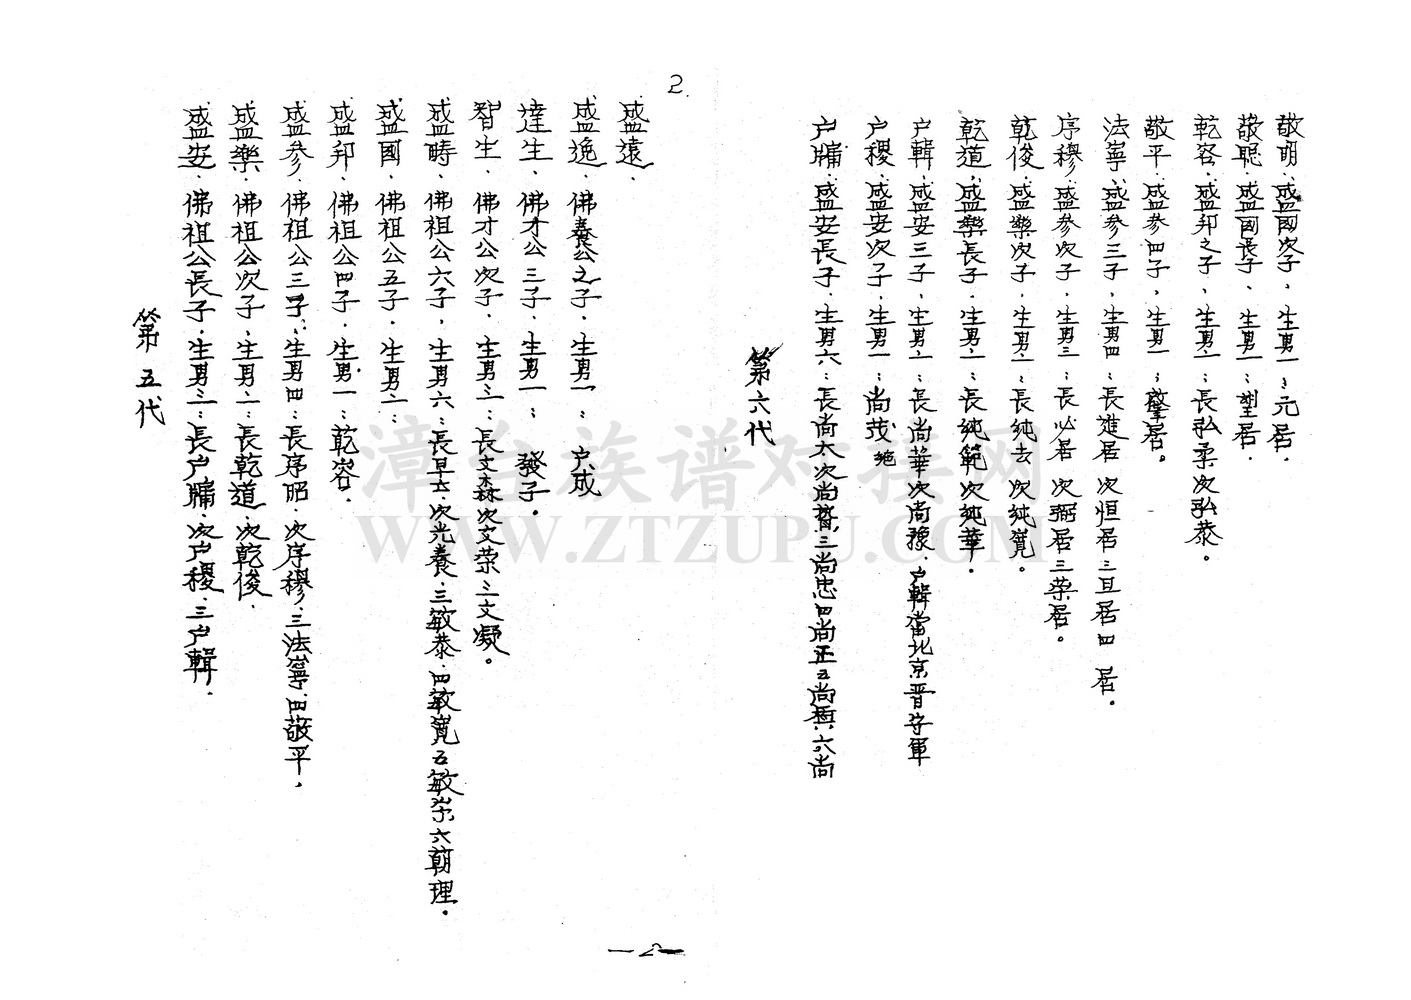 2.
第五代
盛安．佛祖公長子．生男三：長户牖．次户稷．三户輯．
盛樂．佛祖公次子．生男二：長乾道．次乾俊．
盛參．佛祖公三子．生男四：長序昭．次序穆．三法寧．四敬平．
盛邦．佛祖公四子．生男一：乾容．
盛國．佛祖公五子．生男二：
盛時．佛祖公六子．生男六：長早立．次光養．三敏泰．四敏寬五敏崇六朝理．
智生．佛才公次子．生男三：長文森次文荣三文凝。
達生．佛才公三子．生男一：發子．
盛逸．佛養公之子．生男一：户成
盛遠．
第六代
户牖．盛安長子．生男六：長尚太次尚哲三尚忠四尚正五尚興六尚
户稷．盛安次子．生男一：尚茂
户輯．盛安三子．生男二：長尚華次尚豫．户輯當北京晋守軍
乾道．盛樂長子．生男二：長純範次純華．
乾俊．盛樂次子．生男二：長純去次純寬。
序穆．盛參次子．生男三：長必居次弼居三荣居。
法寧．盛參三子．生男四：長進居次恒居三亘居四 居．
敬平．盛參四子．生男一：肇居。
乾容．盛邦之子．生男二：長弘柔次弘恭。
敬聪．盛國長子．生男一：型居．
敬明．盛國次子．生男一：元居．
—2—
漳台族谱对接网
WWW.ZTZUPU.COM